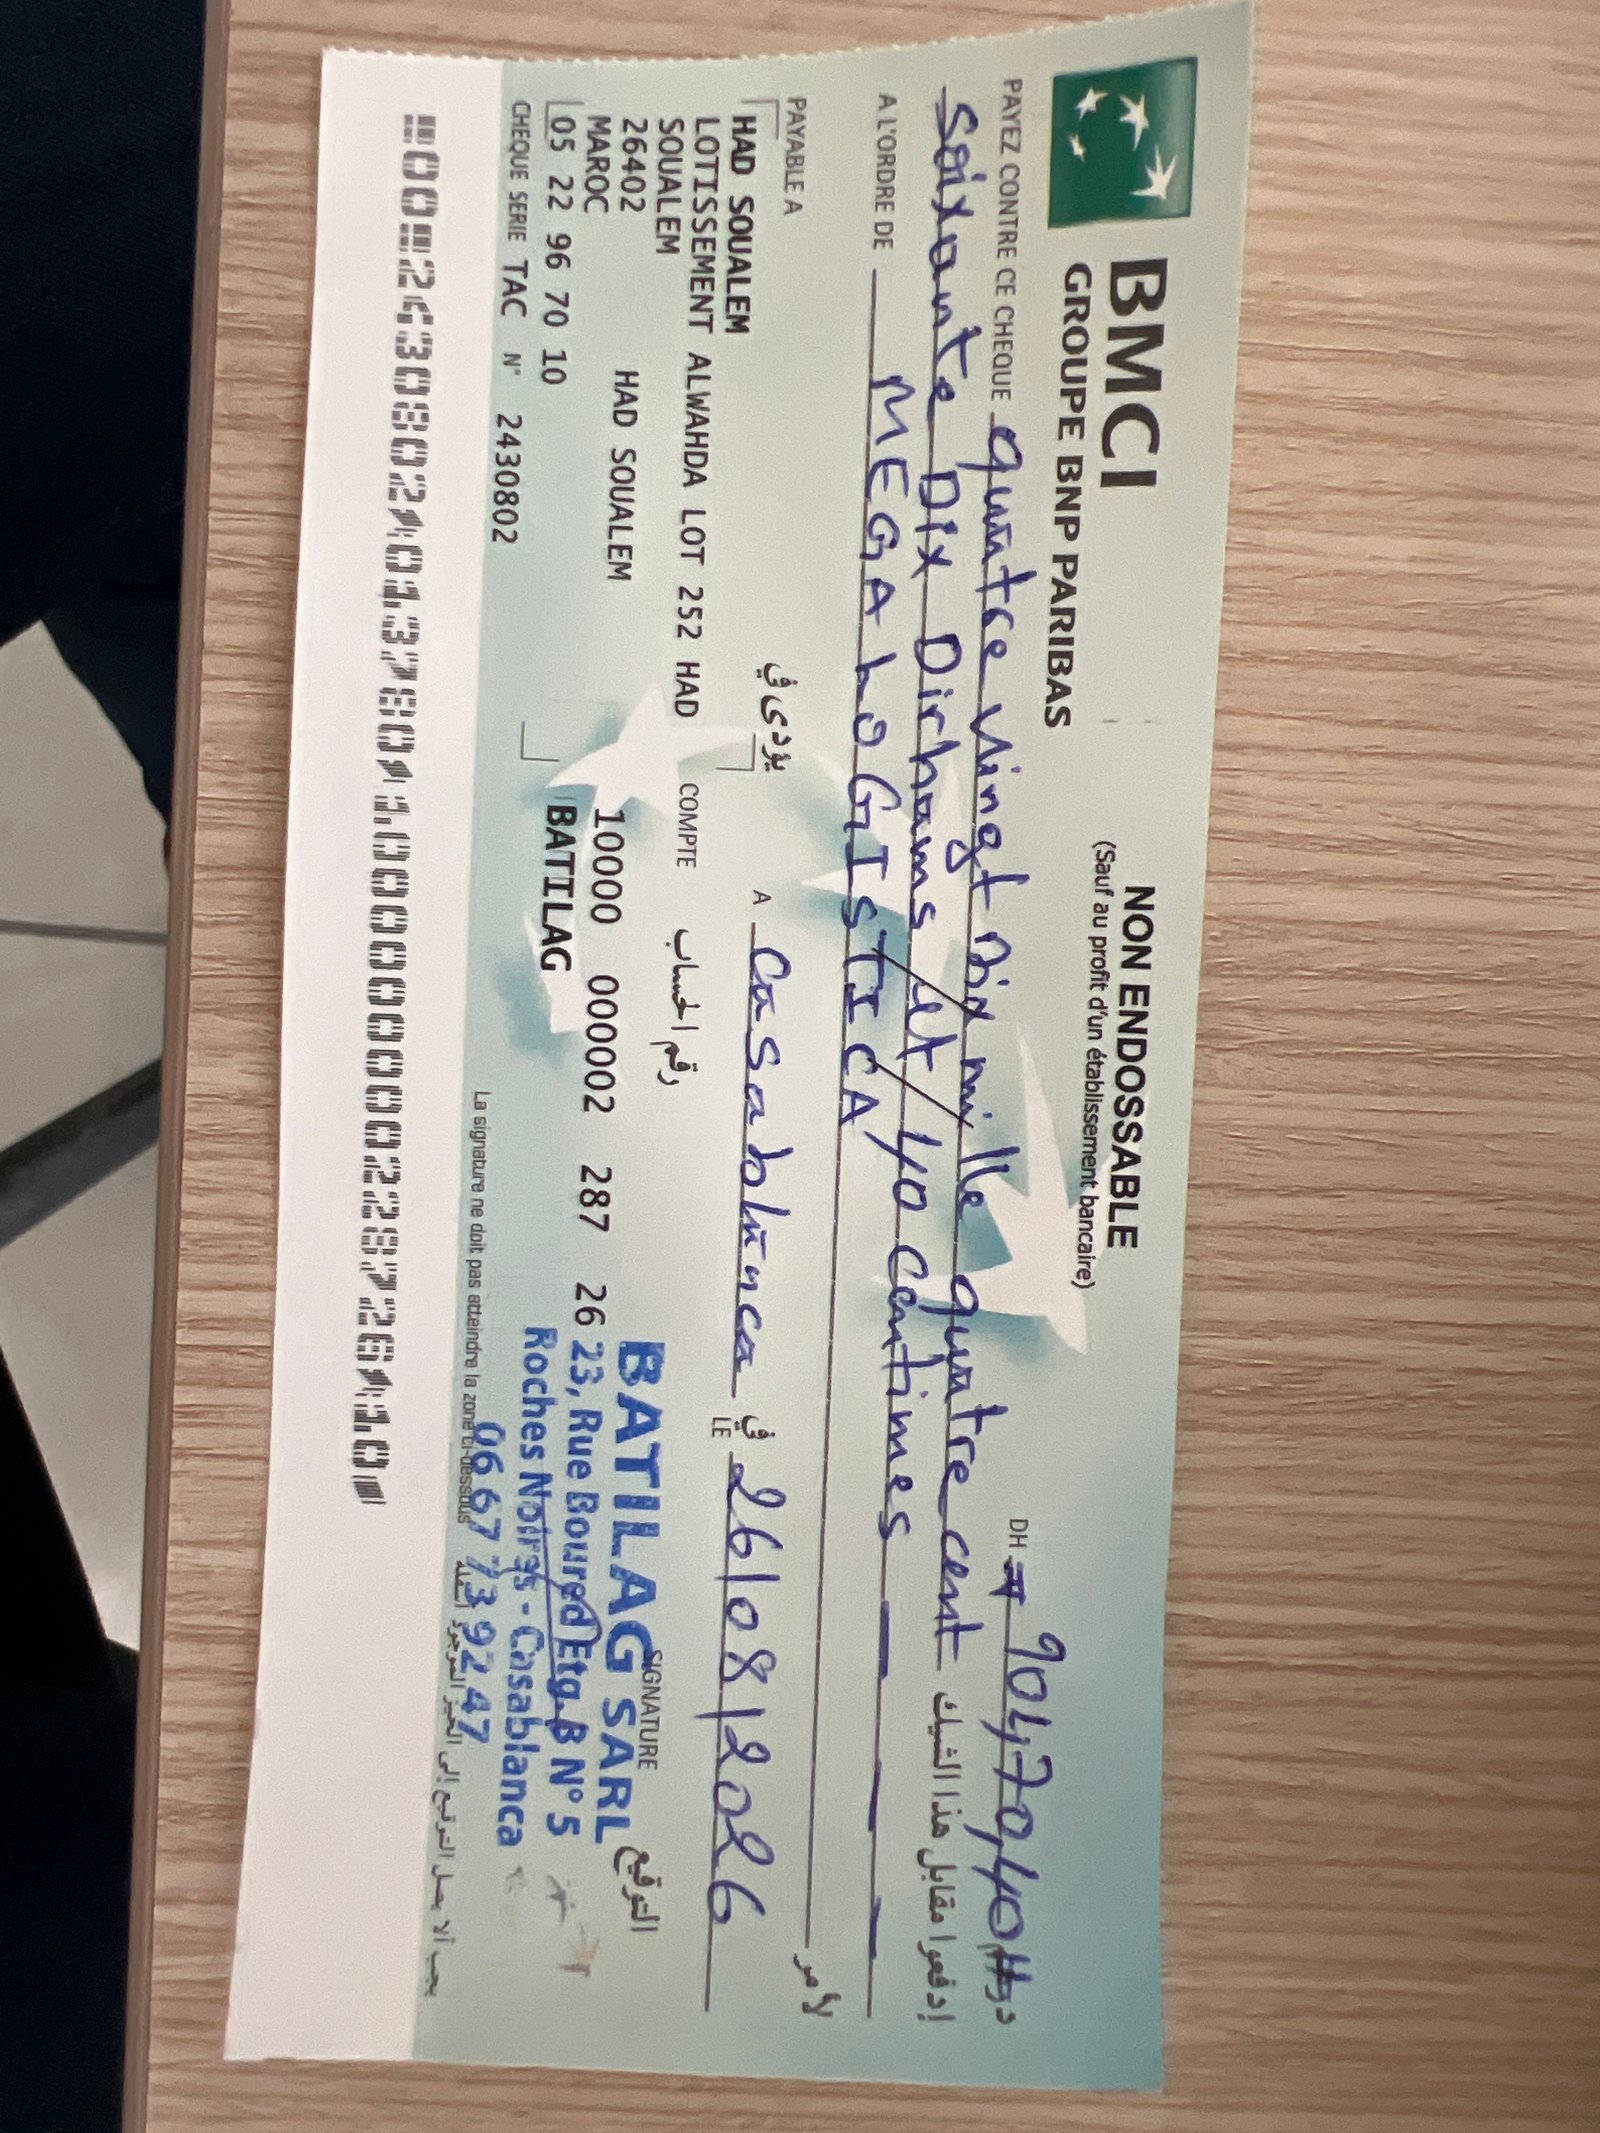 BMCI
GROUPE BNP PARIBAS
NON ENDOSSABLE
(Sauf au profit d'un établissement bancaire)
DH # 904,70,40 # درهم
PAYEZ CONTRE CE CHEQUE quatre vingt Dix mille quatre cent إدفعوا مقابل هذا الشيك
soixante Dix Dirhams et / 40 centimes
A L'ORDRE DE MEGA LOGISTICA لأمر
PAYABLE A يؤدى في
HAD SOUALEM
LOTISSEMENT ALWAHDA LOT 252 HAD
SOUALEM
26402 HAD SOUALEM
MAROC
05 22 96 70 10
CHEQUE SERIE TAC N° 2430802
A Casablanca في LE 26/08/2026
COMPTE رقم الحساب
10000 000002 287 26
BATILAG
SIGNATURE التوقيع
BATILAG SARL
23, Rue Boured Etg.B N° 5
Roches Noires - Casablanca
06 67 73 92 47
La signature ne doit pas atteindre la zone ci-dessous يجب ألا يصل التوقيع إلى الحيز الموجود أسفله